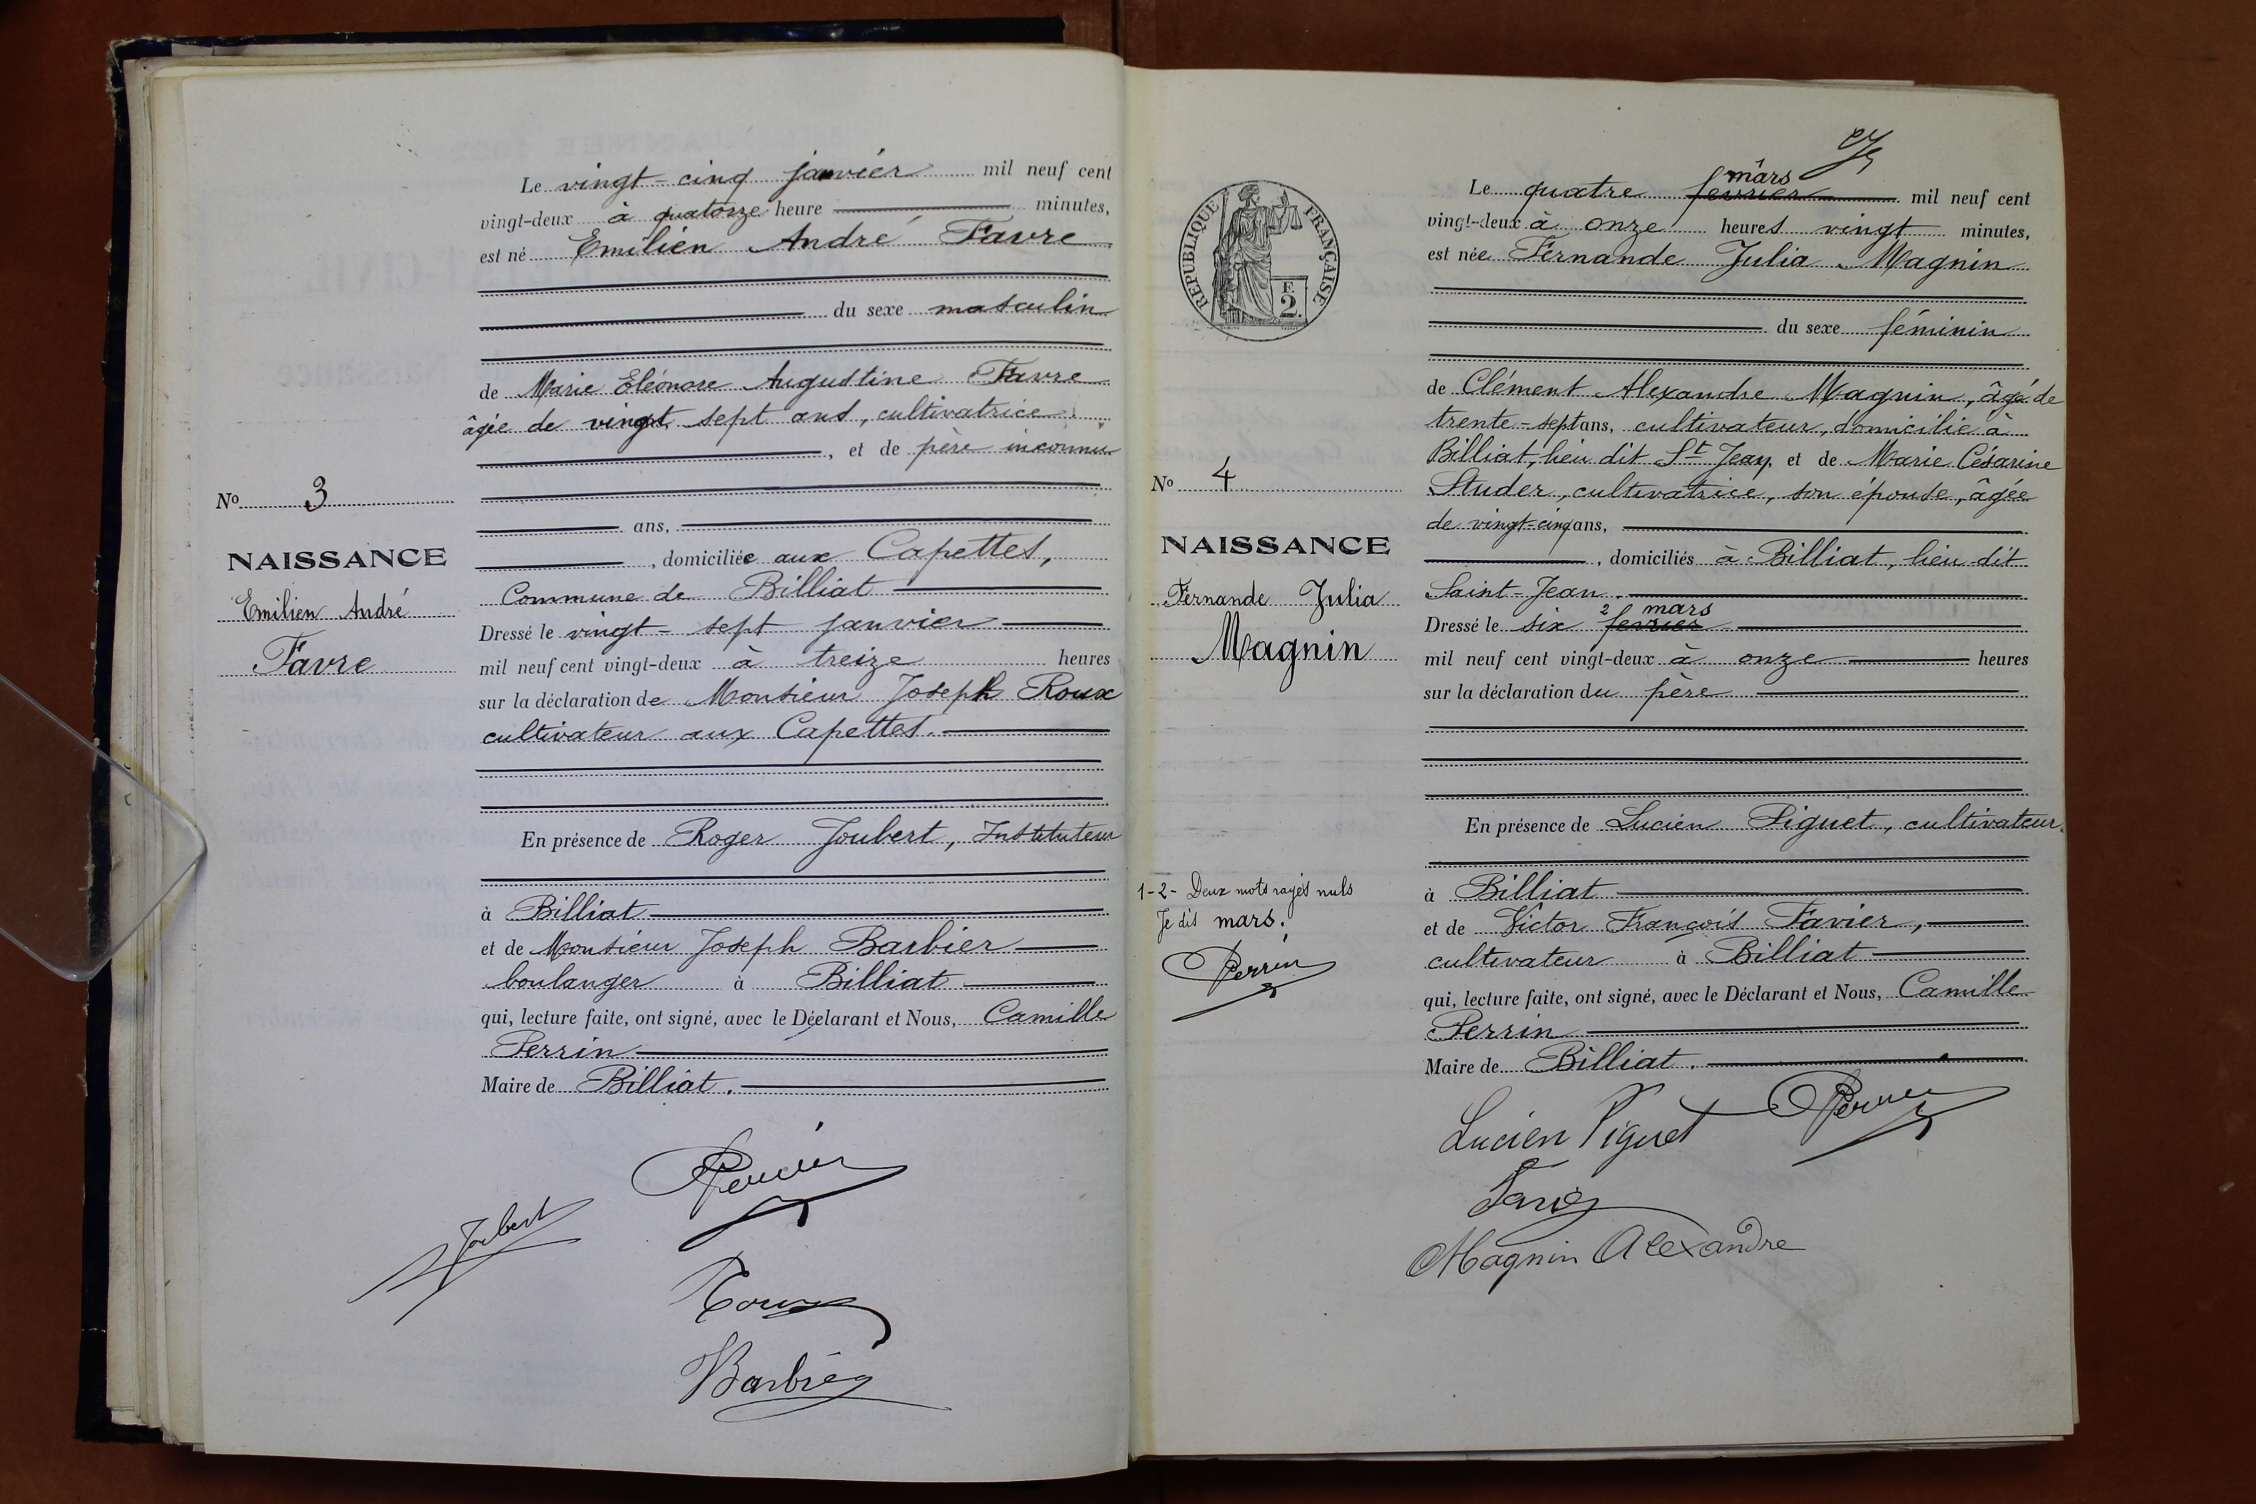 Le vingt-cinq janvier mil neuf cent
vingt-deux à quatorze heure minutes,
est né Emilien André Favre
du sexe masculin
de Marie Eléonore Augustine Favre
âgée de vingt sept ans, cultivatrice
, et de père inconnu
ans,
, domiciliée aux Capettes,
Commune de Billiat
Dressé le vingt-sept janvier
mil neuf cent vingt-deux à treize heures
sur la déclaration de Monsieur Joseph Roux
cultivateur aux Capettes.
En présence de Roger Joubert, Instituteur
à Billiat
et de Monsieur Joseph Barbier
boulanger à Billiat
qui, lecture faite, ont signé, avec le Déclarant et Nous, Camille
Perrin
Maire de Billiat.
No 3
NAISSANCE
Emilien André
Favre
Perrin
Joubert
Roux
Barbier
mars
Le quatre fevrier mil neuf cent
vingt-deux à onze heures vingt minutes,
est née Fernande Julia Magnin
du sexe féminin
de Clément Alexandre Magnin, âgé de
trente-sept ans, cultivateur, domicilié à
Billiat, lieu dit St Jean, et de Marie Césarine
Studer, cultivatrice, son épouse, âgée
de vingt-cinq ans,
, domiciliés à Billiat, lieu dit
Saint-Jean.
2 mars
Dressé le six fevrier
mil neuf cent vingt-deux à onze heures
sur la déclaration du père
En présence de Lucien Piguet, cultivateur
à Billiat
et de Victor François Favier,
cultivateur à Billiat
qui, lecture faite, ont signé, avec le Déclarant et Nous, Camille
Perrin
Maire de Billiat.
RÉPUBLIQUE FRANÇAISE
F.
2.
No 4
NAISSANCE
Fernande Julia
Magnin
1-2- Deux mots rayés nuls
Je dis mars.
Perrin
Lucien Piguet Perrin
Favier
Magnin Alexandre